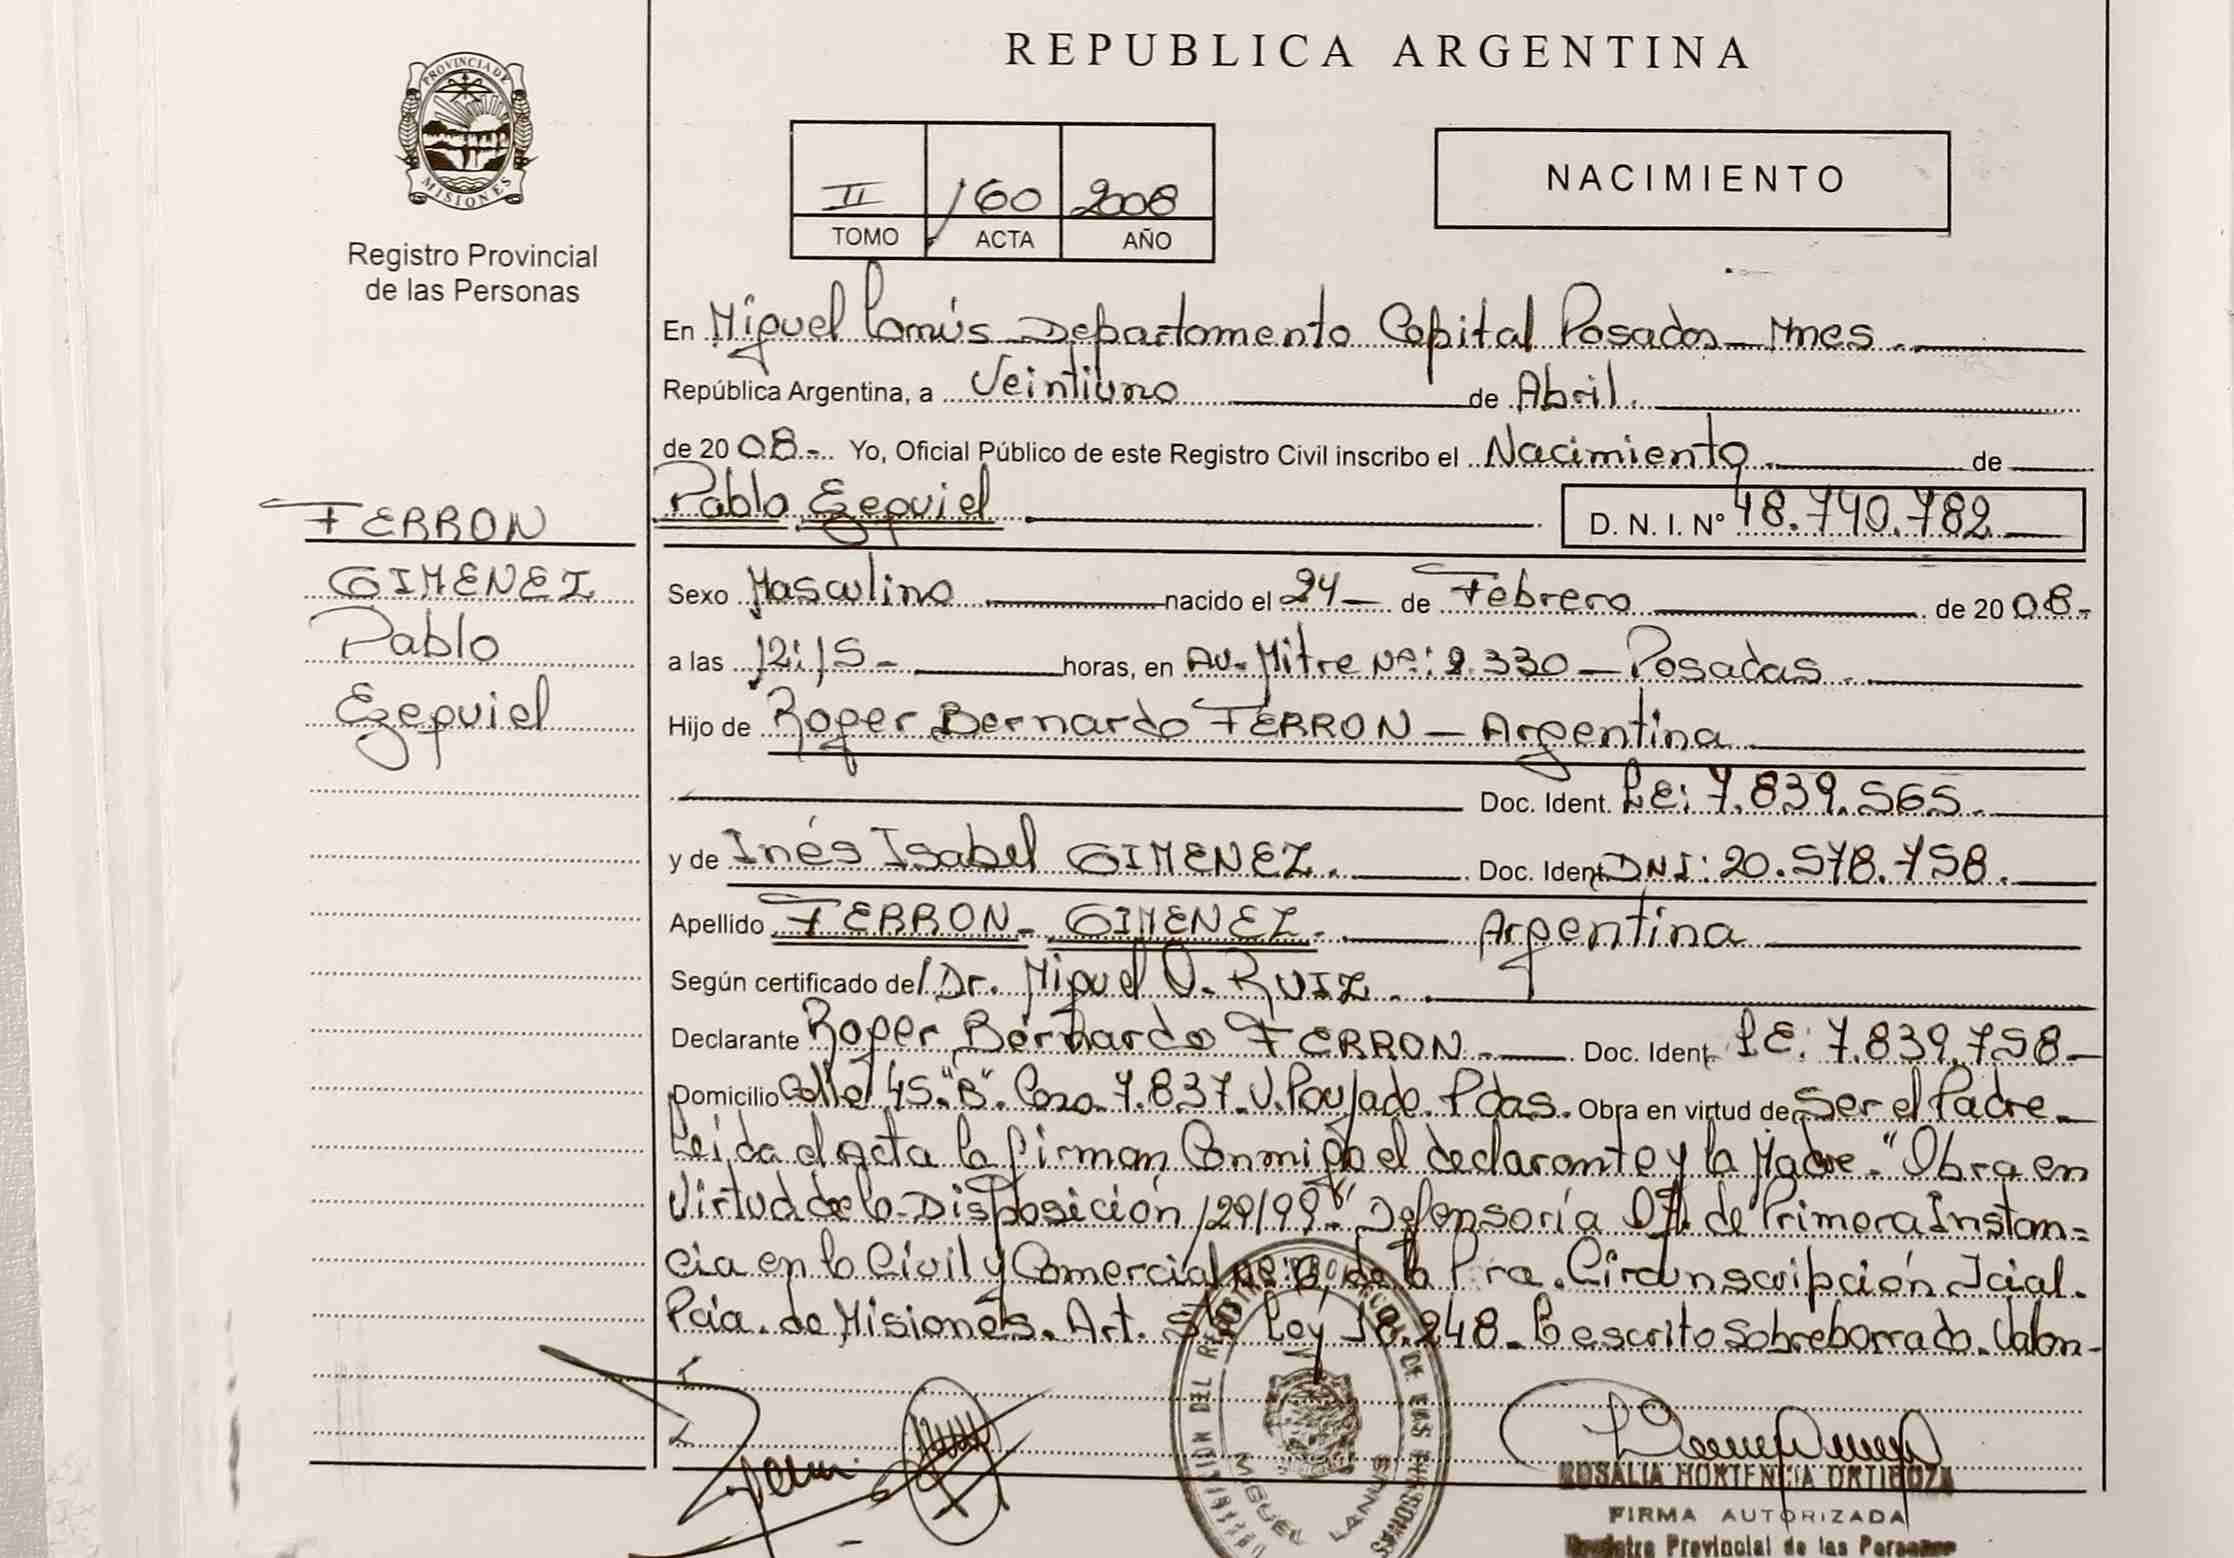 REPUBLICA ARGENTINA
PROVINCIA DE
MISIONES
Registro Provincial
de las Personas
II 160 2008
TOMO ACTA AÑO
NACIMIENTO
En Miguel Lanús Departamento Capital Posadas Mnes.
República Argentina, a Veintiuno de Abril.
de 2008.- Yo, Oficial Público de este Registro Civil inscribo el Nacimiento de
Pablo Ezequiel D. N. I. Nº 48.740.782
FERRON
GIMENEZ
Pablo
Ezequiel
Sexo Masculino nacido el 24 de Febrero de 2008.-
a las 12:15 - horas, en Av. Mitre Nº: 2.330 - Posadas.
Hijo de Roger Bernardo FERRON - Argentina
Doc. Ident. LE: 7.839.565.
y de Inés Isabel GIMENEZ. Doc. Ident. DNI: 20.578.758.
Apellido FERRON - GIMENEZ. Argentina
Según certificado del Dr. Miguel O. RUIZ.
Declarante Roger Bernardo FERRON. Doc. Ident. LE: 7.839.758
Domicilio Calle 45."B". Casa 7.837. V. Poujade. Pdas. Obra en virtud de Ser el Padre.
Leída el Acta la firman Conmigo el declarante y la Madre. "Obra en
Virtud de la Disposición 129/99" Defensoría Of. de Primera Instan=
cia en lo Civil y Comercial de la Pra. Circunscripción Jcial.
Pcia. de Misiones. Art. Ley 18.248. Lo escrito sobreborrado. Valen-
MIGUEL LANUS
ROSALIA HORTENCIA ORTIGOZA
FIRMA AUTORIZADA
Registro Provincial de las Personas